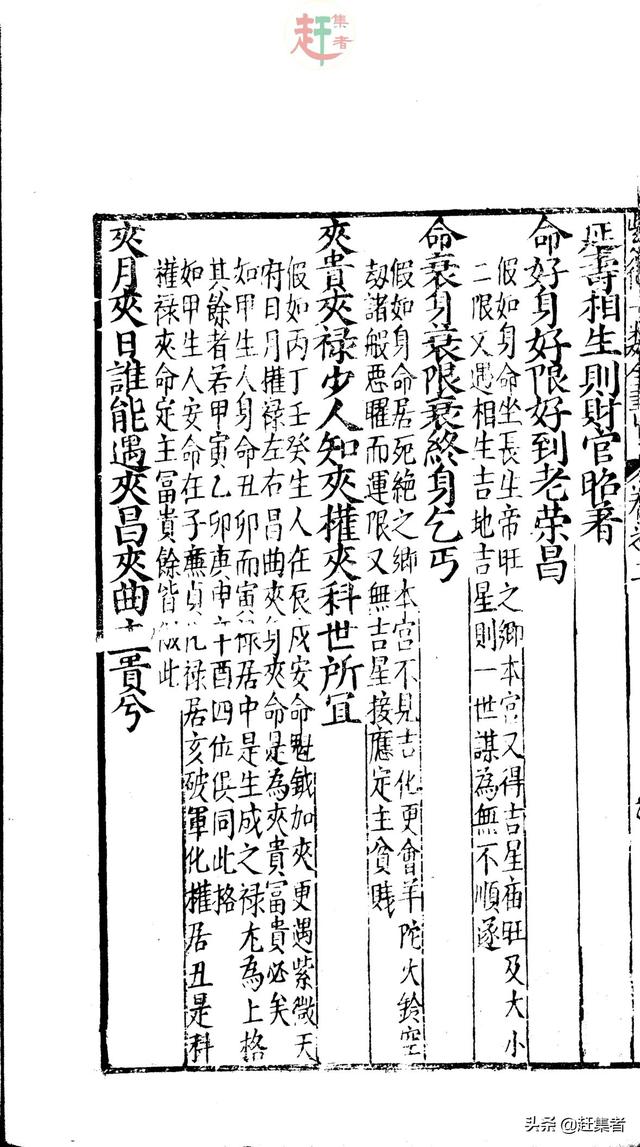 赶集者
延壽相生則財官昭著
命好身好限好到老荣昌
假如身命坐長生帝旺之鄉本宮又得吉星庙旺及大小
二限又遇相生吉地吉星則一世謀為無不順遂
命衰身衰限衰終身乞丐
假如身命居死絶之鄉本宮不見吉化更會羊陀火鈴空
刼諸般惡曜而運限又無吉星接應定主貧賎
夾貴夾禄少人知夾權夾科世所宜
假如丙丁壬癸生人在辰戌安命魁鉞加夾更遇紫微天
府日月權禄左右昌曲夾身夾命是為夾貴富貴必矣
如甲生人身命丑卯而寅禄居中是生成之禄尤為上格
其餘者若甲寅乙卯庚申辛酉四位俱同此格
如甲生人安命在子廉貞化禄居亥破軍化權居丑是科
權禄夾命定主富貴餘皆倣此
夾月夾日誰能遇夾昌夾曲主貴兮
头条@赶集者